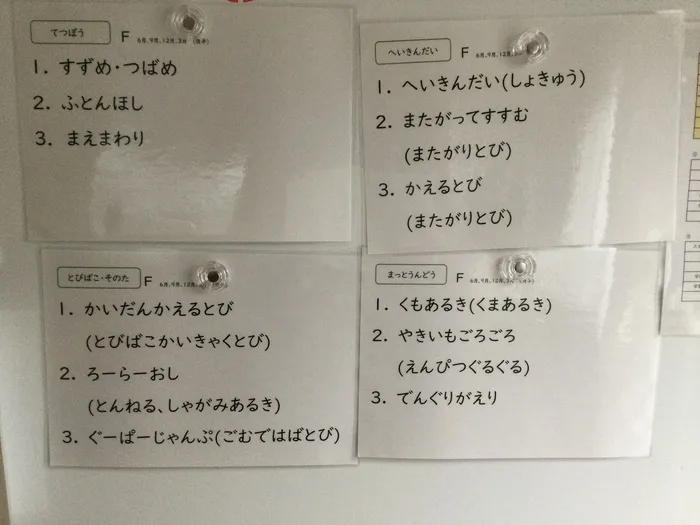 てつぼう F 6月、9月、12月、3月 (後半)
1. すずめ・つばめ
2. ふとんほし
3. まえまわり
へいきんだい F 6月、9月、12月
1. へいきんだい(しょきゅう)
2. またがってすすむ
(またがりとび)
3. かえるとび
(またがりとび)
とびばこ・そのた F 6月、9月、12月
1. かいだんかえるとび
(とびばこかいきゃくとび)
2. ろーらーおし
(とんねる、しゃがみあるき)
3. ぐーぱーじゃんぷ(ごむではばとび)
まっとうんどう F 6月、9月、12月
1. くもあるき(くまあるき)
2. やきいもごろごろ
(えんぴつぐるぐる)
3. でんぐりがえり